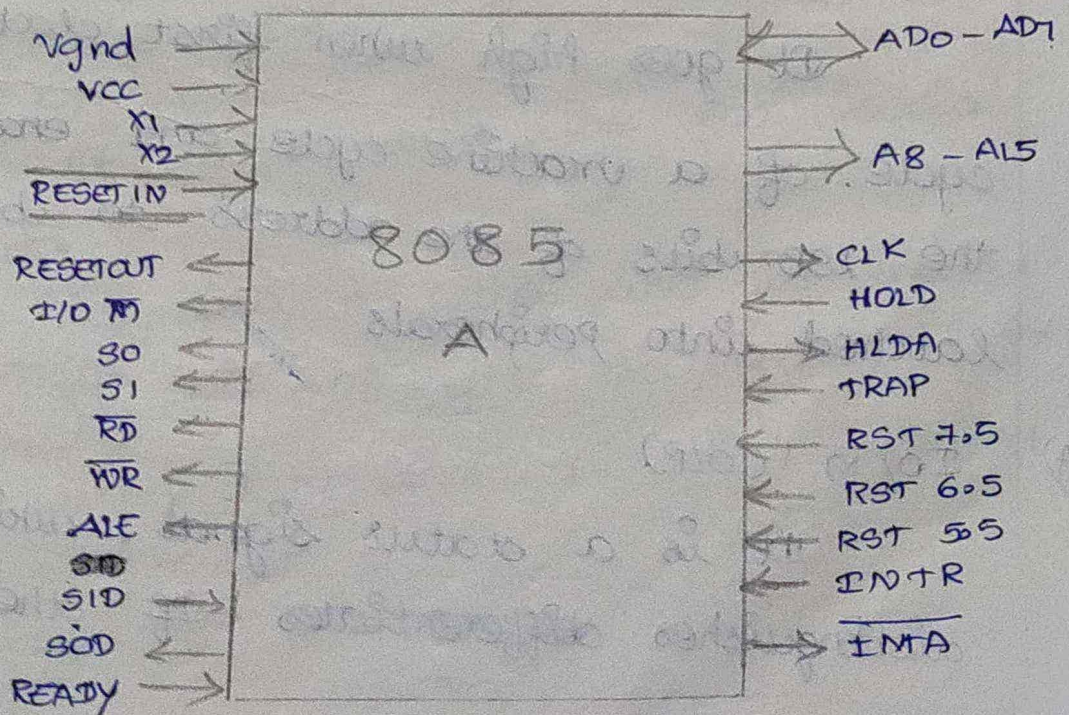 Vgnd
VCC
X1
X2
RESET IN
RESETOUT
I/O M̅
S0
S1
R̅D̅
W̅R̅
ALE
SID
SOD
READY
8085
A
AD0 - AD7
A8 - A15
CLK
HOLD
HLDA
TRAP
RST 7.5
RST 6.5
RST 5.5
INTR
I̅N̅T̅A̅